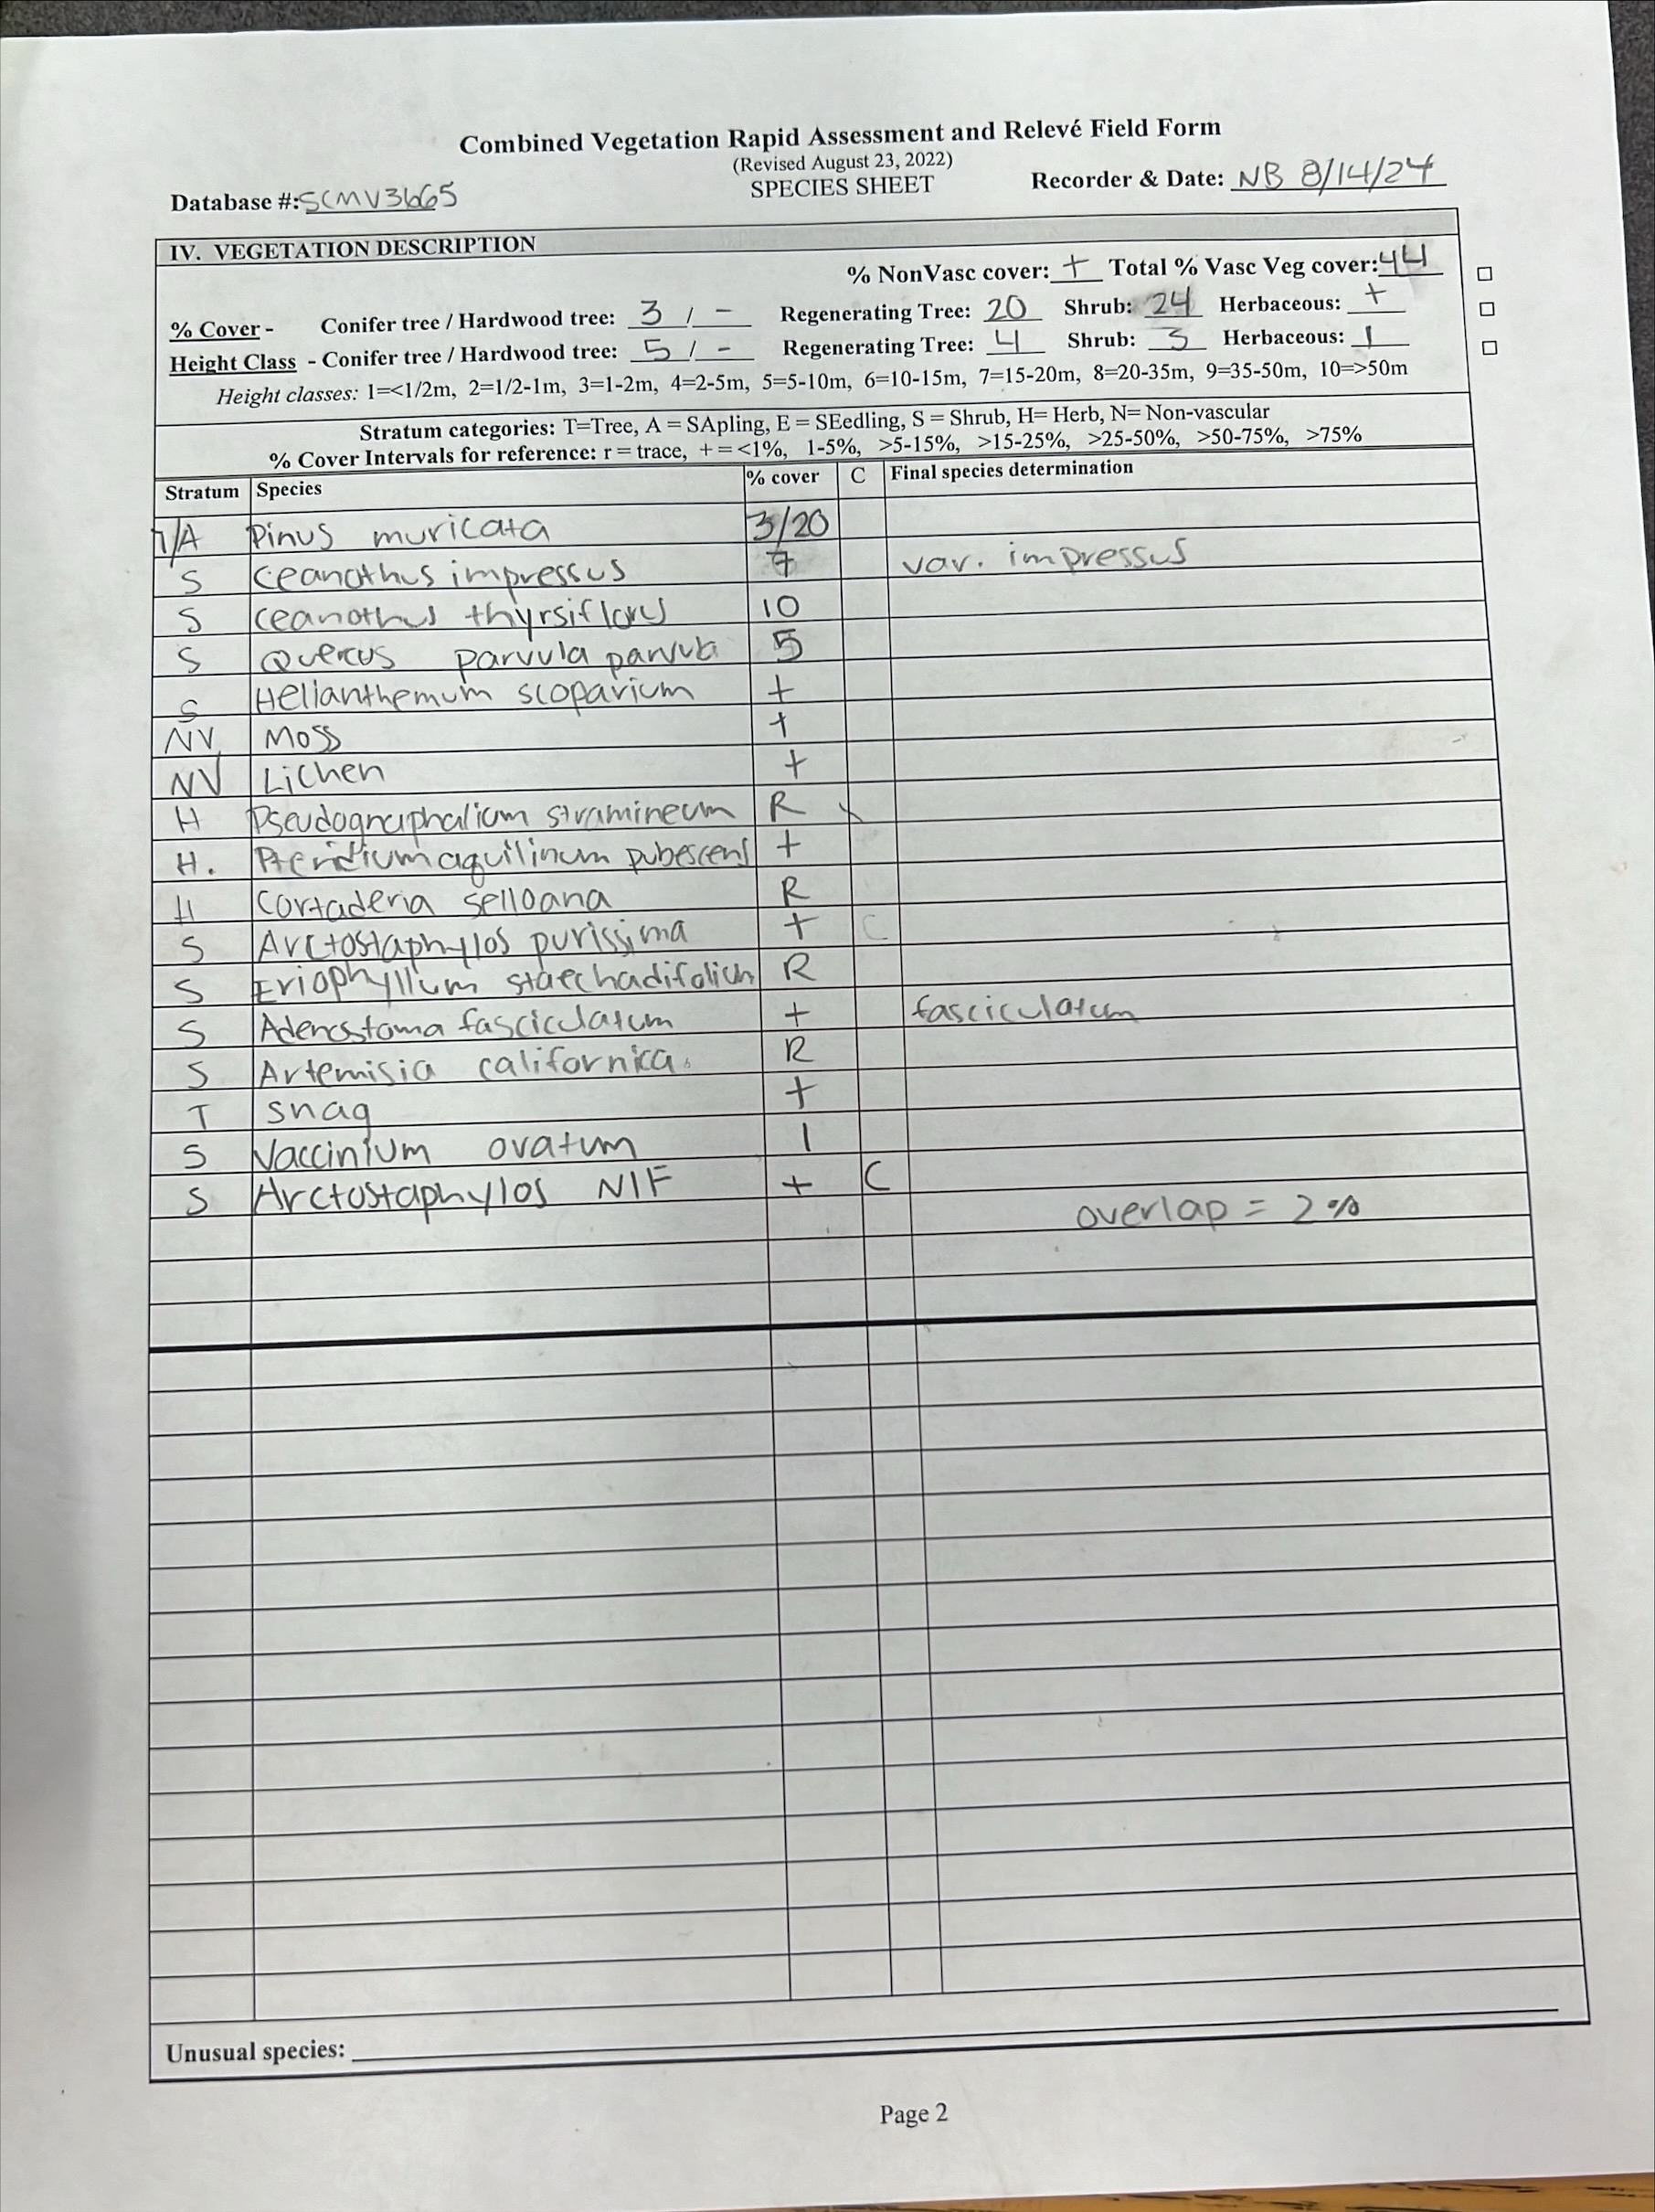 Combined Vegetation Rapid Assessment and Relevé Field Form
(Revised August 23, 2022)
Database #: SCMV3665 SPECIES SHEET Recorder & Date: NB 8/14/24
IV. VEGETATION DESCRIPTION
% NonVasc cover: + Total % Vasc Veg cover: 44
% Cover - Conifer tree / Hardwood tree: 3 / - Regenerating Tree: 20 Shrub: 24 Herbaceous: +
Height Class - Conifer tree / Hardwood tree: 5 / - Regenerating Tree: 4 Shrub: 3 Herbaceous: 1
Height classes: 1=<1/2m, 2=1/2-1m, 3=1-2m, 4=2-5m, 5=5-10m, 6=10-15m, 7=15-20m, 8=20-35m, 9=35-50m, 10=>50m
Stratum categories: T=Tree, A = SApling, E = SEedling, S = Shrub, H= Herb, N= Non-vascular
% Cover Intervals for reference: r = trace, + = <1%, 1-5%, >5-15%, >15-25%, >25-50%, >50-75%, >75%
Stratum Species % cover C Final species determination
T/A Pinus muricata 3/20
S Ceanothus impressus 7 var. impressus
S Ceanothus thyrsiflorus 10
S Quercus parvula parvula 5
S Helianthemum scoparium +
NV Moss +
NV Lichen +
H Pseudognaphalium stramineum R
H. Pteridium aquilinum pubescens +
H Cortaderia selloana R
S Arctostaphylos purissima + C
S Eriophyllum staechadifolium R
S Adenostoma fasciculatum + fasciculatum
S Artemisia californica. R
T snag +
S Vaccinium ovatum 1
S Arctostaphylos NIF + C
overlap = 2%
Unusual species:
Page 2